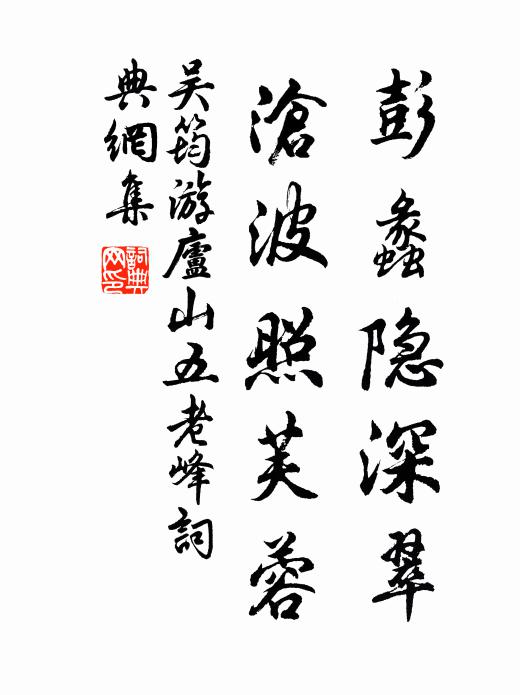 彭蠡隐深翠
滄波照芙蓉
吴筠游廬山五老峰詞
典網集
詞典网印